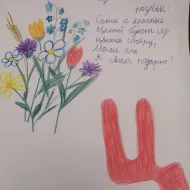 разные:
Синие и красные
Целый букет из
цветов соберу,
Маме его
я подарю!
Ц